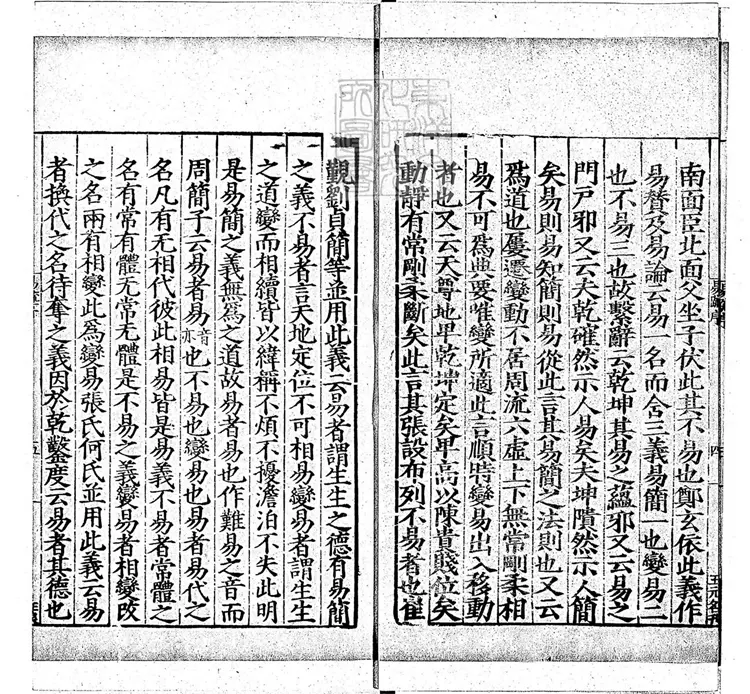 南面臣北面父坐子伏此其不易也鄭玄依此義作
易贊及易論云易一名而含三義易簡一也變易二
也不易三也故繫辭云乾坤其易之蘊邪又云易之
門戸邪又云夫乾確然示人易矣夫坤隤然示人簡
矣易則易知簡則易從此言其易簡之法則也又云
爲道也屢遷變動不居周流六虛上下無常剛柔相
易不可爲典要唯變所適此言順時變易出入移動
者也又云天尊地卑乾坤定矣卑高以陳貴賤位矣
動靜有常剛柔斷矣此言其張設布列不易者也崔
觀劉貞簡等並用此義云易者謂生生之德有易簡
之義不易者言天地定位不可相易變易者謂生生
之道變而相續皆以緯稱不煩不擾澹泊不失此明
是易簡之義無爲之道故易者易也作難易之音而
周簡子云易者易音亦也不易也變易也易者易代之
名凡有无相代彼此相易皆是易義不易者常體之
名有常有體无常无體是不易之義變易者相變改
之名兩有相變此爲變易張氏何氏並用此義云易
者換代之名待奪之義因於乾鑿度云易者其德也